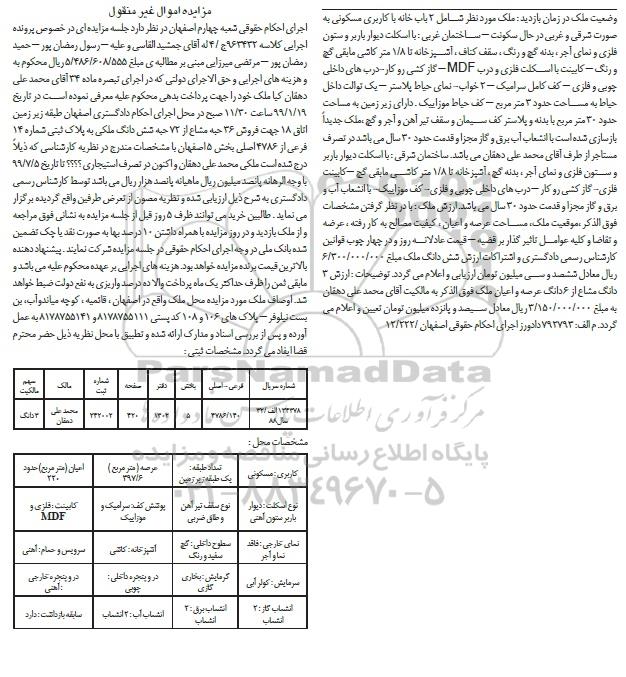 مزایده اموال غیر منقول
اجرای احکام حقوقی شعبه چهارم اصفهان در نظر دارد جلسه مزایده ای در خصوص پرونده
اجرایی کلاسه ۹۶۳۴۳۲ج / ۴ له آقای جمشید القاسی و علیه – رسول رمضان پور – حمید
رمضان پور – مرتضی میرزایی مبنی بر مطالبه ی مبلغ ۵/۴۸۶/۶۰۸/۵۵۵ ریال محکوم به
و هزینه های اجرایی و حق الاجرای دولتی که در اجرای تبصره ماده ۳۴ آقای محمد علی
دهقان کیا ملک خود را جهت پرداخت بدهی محکوم علیه معرفی نموده است در تاریخ
۹۹/۱/۱۹ ساعت ۱۱/۳۰ صبح در محل اجرای احکام دادگستری اصفهان طبقه زیر زمین
اتاق ۱۸ جهت فروش ۳۶ حبه مشاع از ۷۲ حبه شش دانگ ملکی به پلاک ثبتی شماره ۱۴
فرعی از ۴۷۸۶ اصلی بخش ۵ اصفهان با مشخصات مندرج در نظریه کارشناسی که ذیلاً
درج شده است ملکی محمد علی دهقان و اکنون در تصرف استیجاری ؟؟؟؟ تا تاریخ ۹۹/۷/۵
با وجه الرهانه پانصد میلیون ریال ماهیانه پانصد هزار ریال می باشد توسط کارشناس رسمی
دادگستری به شرح ذیل ارزیابی شده و نظریه مصون از تعرض طرفین واقع گردیده برگزار
می نماید . طالبین خرید می توانند ظرف ۵ روز قبل از جلسه مزایده به نشانی فوق مراجعه
و از ملک بازدید و در روز مزایده با همراه داشتن ۱۰ درصد بها به صورت نقد یا چک تضمین
شده بانک ملی در وجه اجرای احکام حقوقی در جلسه مزایده شرکت نمایند . پیشنهاد دهنده
بالاترین قیمت برنده مزایده خواهد بود. هزینه های اجرایی بر عهده محکوم علیه می باشد و
مابقی ثمن را ظرف حداکثر یک ماه پرداخت والا ده درصد واریزی به نفع دولت ضبط خواهد
شد. اوصاف ملک مورد مزایده محل ملک واقع در اصفهان ، قائمیه ، کوچه میاندوآب، بن
بست نیلوفر – پلاک های ۱۰۶ و ۱۰۸ کد پستی ۸۱۷۸۷۵۵۱۱۱ و ۸۱۷۸۷۵۵۱۴۱ به عمل
آورده و پس از بررسی اسناد و مدارک ارائه شده و تطبیق با محل نظریه ذیل حضر محترم
قضا ایفاد می گردد. مشخصات ثبتی :
شماره سریال | فرعی – اصلی | بخش | دفتر | صفحه | شماره ثبت | مالک | سهم مالکیت
۱۳۴۳۷۸ الف/۳۲ سال ۸۸ | ۴۷۸۶/۱۴۰ | ۵ | ۱۳۰۴ | ۴۲۰ | ۲۴۲۰۰۲ | محمد علی دهقان | ۳ دانگ
مشخصات محل :
کاربری : مسکونی | تعداد طبقه : یک طبقه : زیر زمین | عرصه (متر مربع) ۳۹۷/۶ | اعیان (متر مربع) حدود ۲۲۰
نوع اسکلت : دیوار باربر ستون آهنی | نوع سقف تیر آهن و طاق ضربی | پوشش کف: سرامیک و موزاییک | کابینت : فلزی و MDF
نمای خارجی : فاقد نما و آجر | سطوح داخلی : گچ سفید و رنگ | آشپزخانه : کاشی | سرویس و حمام : آهنی
سرمایش : کولر آبی | گرمایش : بخاری گازی | در و پنجره داخلی : چوبی | در و پنجره خارجی : آهنی
انشعاب گاز : ۲ انشعاب | انشعاب برق : ۲ انشعاب | انشعاب آب : ۲ انشعاب | سابقه بازداشت : دارد
وضعیت ملک در زمان بازدید : ملک مورد نظر شامل ۲ باب خانه با کاربری مسکونی به
صورت شرقی و غربی در حال سکونت – ساختمان غربی : با اسکلت دیوار باربر و ستون
فلزی و نمای آجر ، بدنه گچ و رنگ ، سقف کناف ، آشپزخانه تا ۱/۸ متر کاشی مابقی گچ
و رنگ – کابینت با اسکلت فلزی و درب MDF – گاز کشی رو کار- درب های داخلی
چوبی و فلزی – کف کامل سرامیک – ۲ خواب- نمای حیاط پلاستر – یک توالت داخل
حیاط به مساحت حدود ۳ متر مربع – کف حیاط موزاییک . دارای زیر زمین به مساحت
حدود ۳۰ متر مربع با بدنه و پلاستر کف سیمان و سقف تیر آهن و آجر و گچ .ملک جدیداً
بازسازی شده است با انشعاب آب برق و گاز مجزا و قدمت حدود ۳۰ سال می باشد در تصرف
مستاجر از طرف آقای محمد علی دهقان می باشد. ساختمان شرقی : با اسکلت دیوار باربر
و ستون فلزی و نمای آجر ، بدنه گچ ، آشپزخانه تا ۱/۸ متر کاشی مابقی گچ – کابینت
فلزی – گاز کشی رو کار – درب های داخلی چوبی و فلزی – کف موزاییک – با انشعاب آب و
برق و گاز مجزا و قدمت حدود ۳۰ سال می باشد. ارزش ملک : با در نظر گرفتن مشخصات
فوق الذکر ،موقعیت ملک، مساحت عرصه و اعیان ، کیفیت مصالح به کار رفته ، عرضه
و تقاضا و کلیه عوامل تاثیر گذار بر قضیه – قیمت عادلانه روز و در چهار چوب قوانین
کارشناس رسمی دادگستری و اشتراکات ارزش شش دانگ ملک مبلغ ۶/۳۰۰/۰۰۰/۰۰۰
ریال معادل ششصد و سی میلیون تومان ارزیابی و اعلام می گردد. توضیحات : ارزش ۳
دانگ مشاع از ۶ دانگ عرصه و اعیان ملک فوق الذکر به مالکیت آقای محمد علی دهقان
به مبلغ ۳/۱۵۰/۰۰۰/۰۰۰ ریال معادل سیصد و پانزده میلیون تومان تعیین و اعلام می
گردد. م الف: ۷۹۲۷۹۳ دادورز اجرای احکام حقوقی اصفهان /۱۲/۲۲۲
ParsNamadData
مرکز فرآوری اطلاعات پارس نماد داده ها
پایگاه اطلاع رسانی مناقصه و مزایده
۰۲۱-۸۸۳۴۹۶۷۰-۵